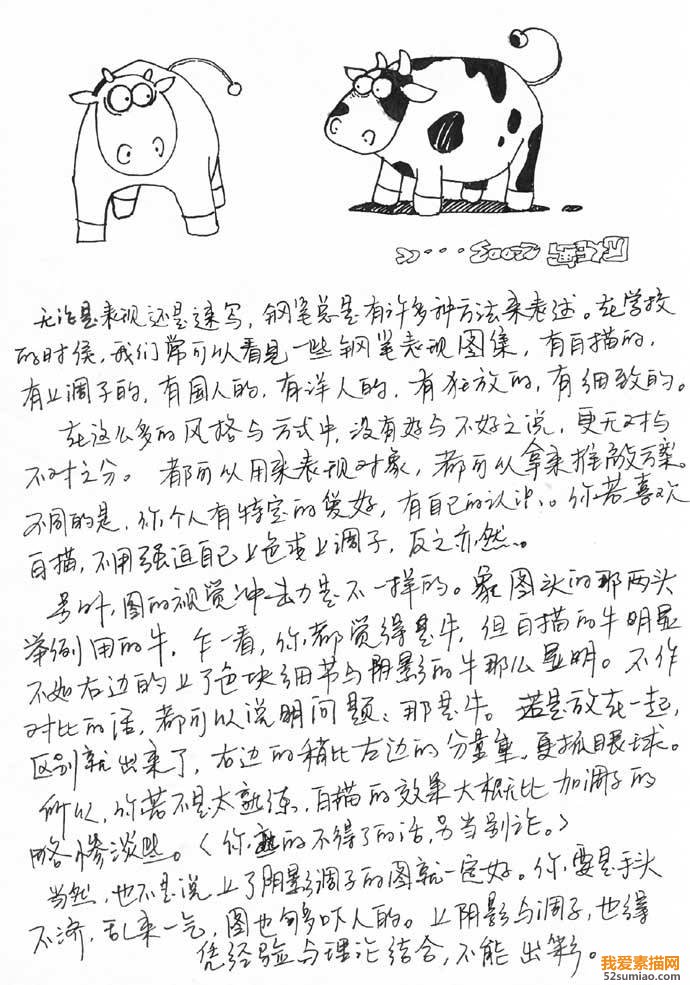 无论是表现还是速写，钢笔总是有许多种方法来表述。在学校
的时候，我们常可以看见一些钢笔表现图集，有白描的，
有上调子的，有国人的，有洋人的，有狂放的，有细致的。
在这么多的风格与方式中，没有好与不好之说，更无对与
不对之分。都可以用来表现对象，都可以拿来推敲方案。
不同的是，你个人有特定的爱好，有自己的认识。你若喜欢
白描，不用强迫自己上色或上调子，反之亦然。
另外，图的视觉冲击力是不一样的。象图头的那两头
举例用的牛，乍一看，你都觉得是牛，但白描的牛明显
不如右边的上了色块细节与阴影的牛那么显明。不作
对比的话，都可以说明问题、那是牛。若是放在一起，
区别就出来了，右边的稍比左边的分量重，更抓眼球。
所以，你若不是太熟练，白描的效果大概比加调子的
略惨淡些。〈你熟的不得了的话，另当别论。〉
当然，也不是说上了阴影调子的图就一定好。你要是手头
不济，乱来一气，图也够多吓人的。上阴影与调子，也得
凭经验与理论结合，不能出彩。
我爱素描网
52sumiao.com